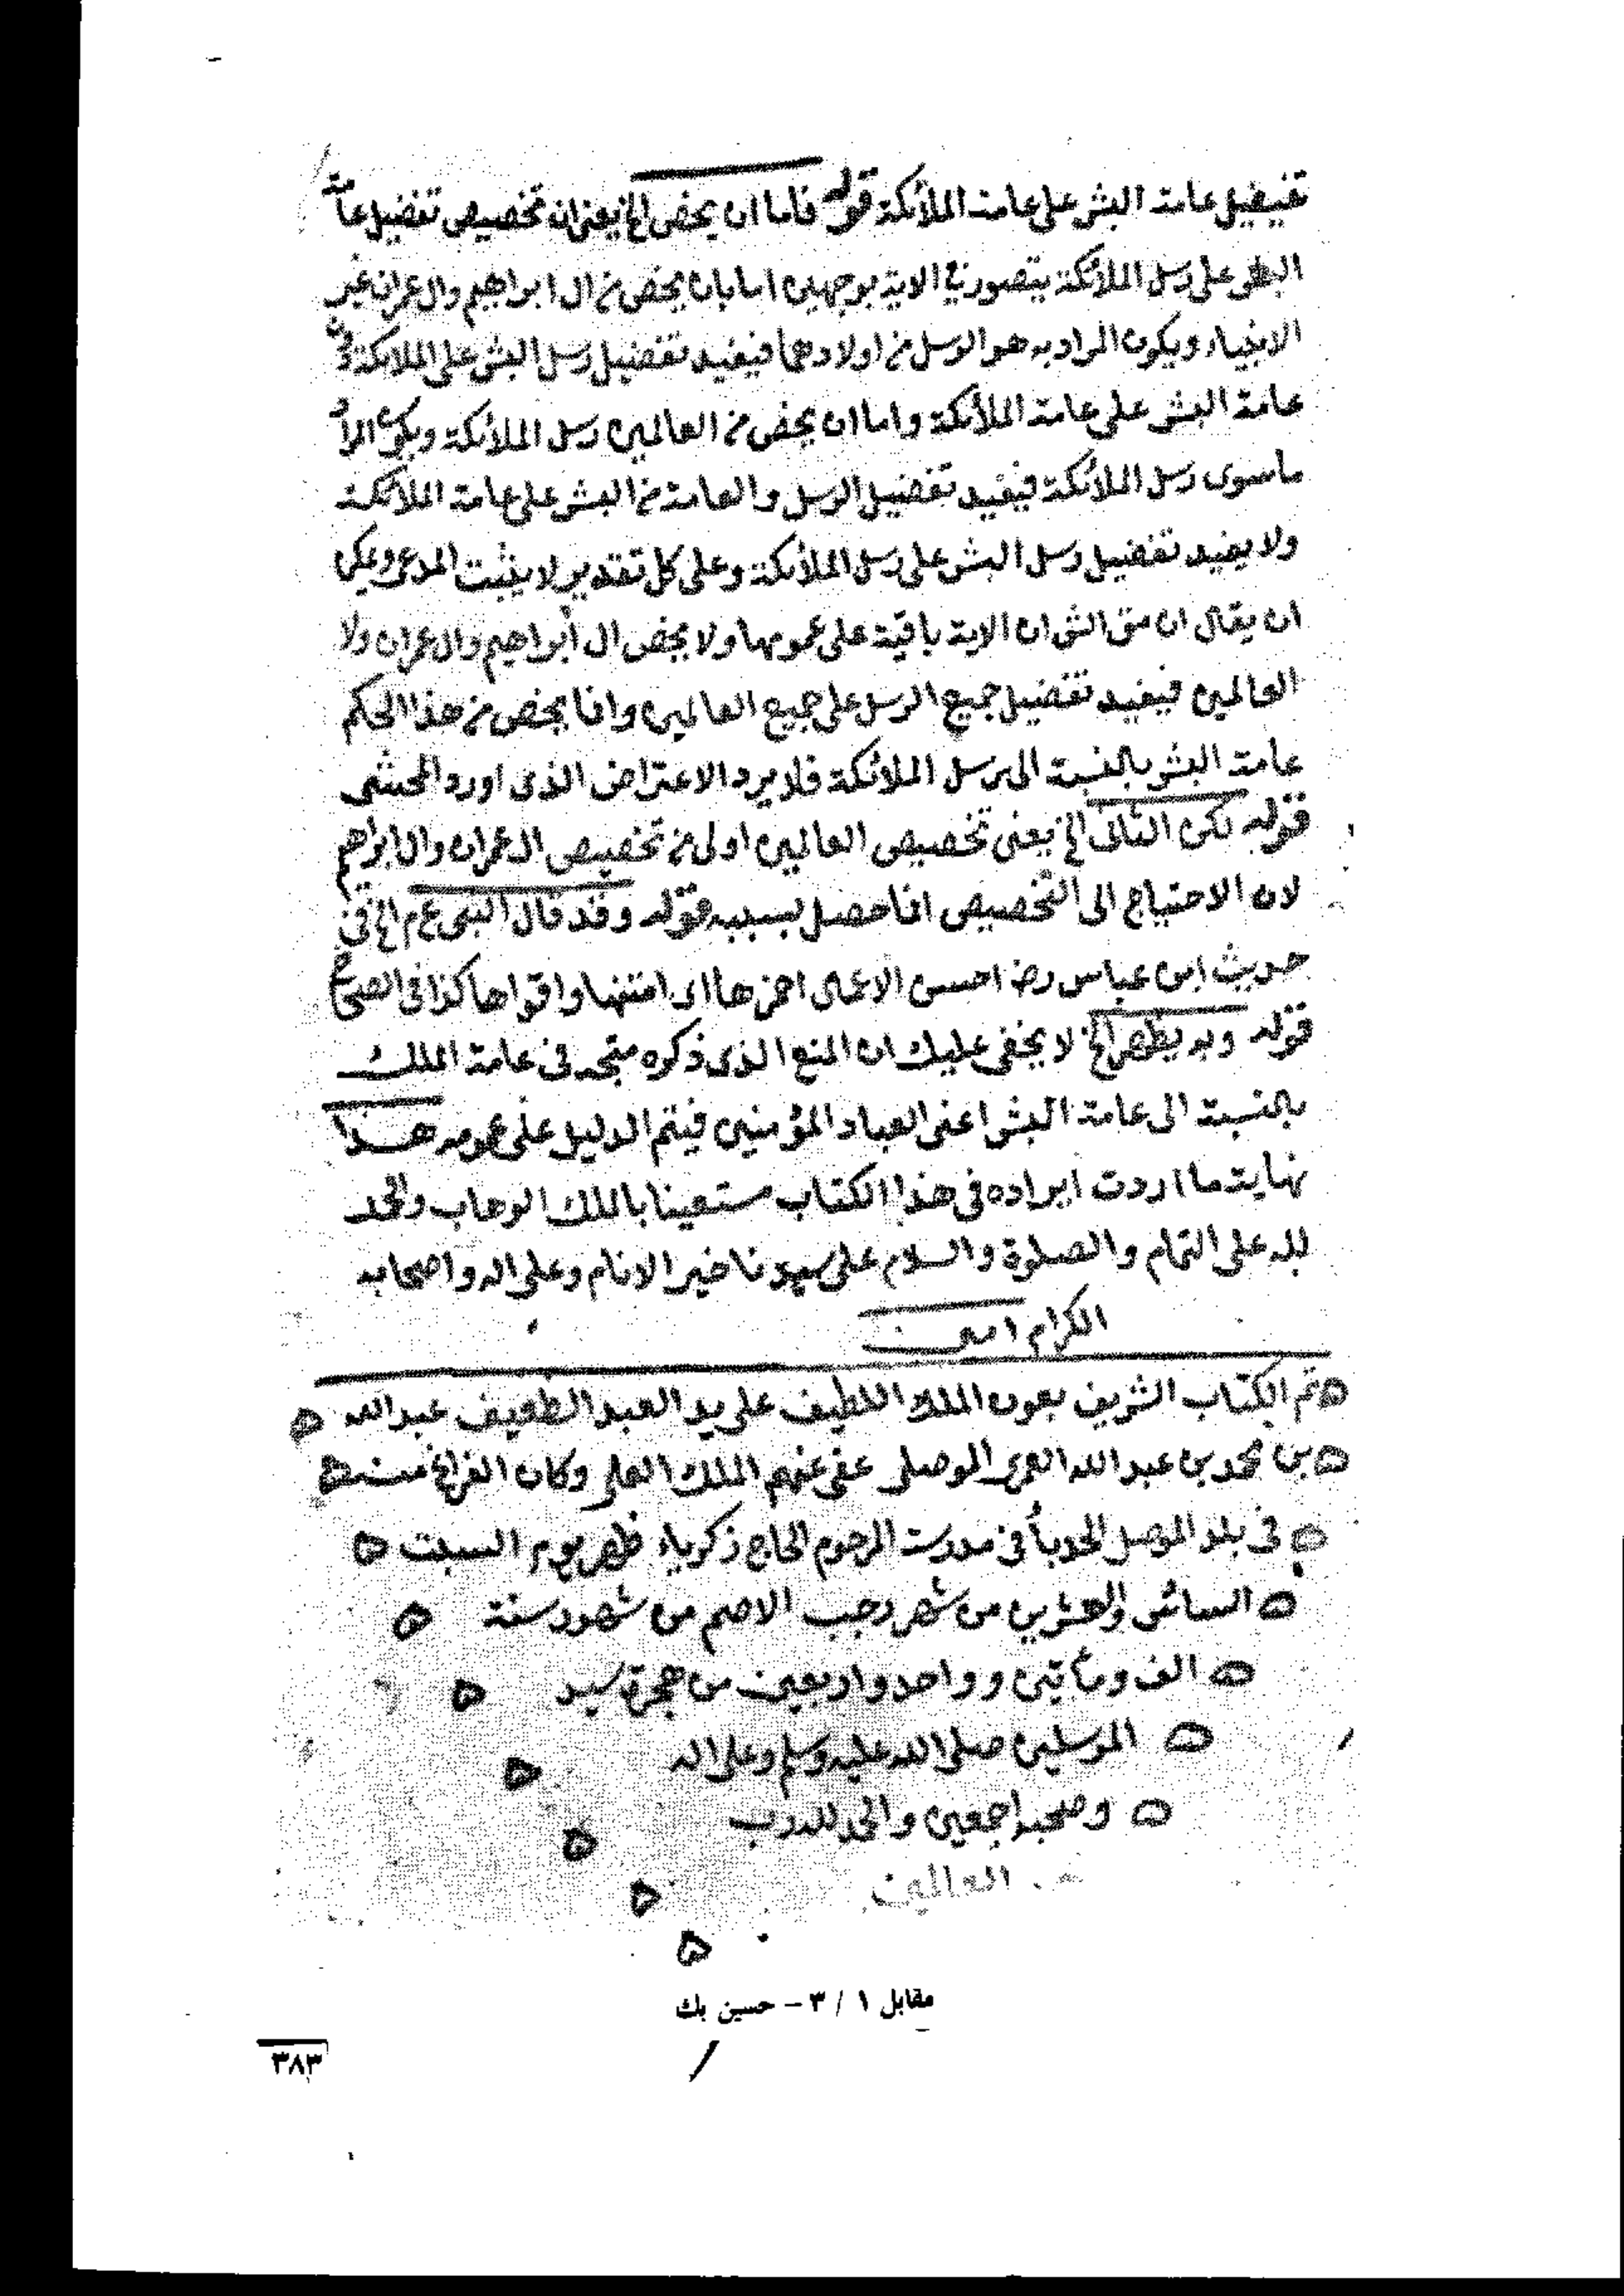 تفيضيل عامة البشر على عامة الملائكة قوله فاما ان يخص الخ يعنى ان تخصيص تفضيل عامة
البشر على رسل الملائكة يتصور فى الاية بوجهين اما بان يخص من ال ابراهيم وال عمران غير
الانبياء ويكون المراد به هو الرسل من اولادهما فيفيد تفضيل رسل البشر على الملائكة دون
عامة البشر على عامة الملائكة واما ان يخص من العالمين رسل الملائكة ويكون المراد
ماسوى رسل الملائكة فيفيد تفضيل الرسل والعامة من البشر على عامة الملائكة
ولا يفيد تفضيل رسل البشر على رسل الملائكة وعلى كل تقدير لا يثبت المدعى ويمكن
ان يقال ان الاية باقية على عمومها ولا يخص ال أبراهيم وال عمران ولا
العالمين فيفيد تفضيل جميع الرسل على جميع العالمين وانما يخص من هذا الحكم
عامة البشر بالنسبة الى رسل الملائكة فلا يرد الاعتراض الذى اورد المحشى
قوله لكن الثانى الخ يعنى تخصيص العالمين اولى من تخصيص ال عمران وال ابراهيم
لان الاحتياج الى التخصيص انما حصل بسببه قوله وقد قال النبى عم الخ فى
حديث ابن عباس رضه احسن الاعمال احمزها اى امتنها واقواها كذا فى الصحاح
قوله وبه يظهر الخ لا يخفى عليك ان المنع الذى ذكره متجه فى عامة الملك
بالنسبة الى عامة البشر اعنى العباد المؤمنين فيتم الدليل على عمومه هذا
نهاية ما اردت ايراده فى هذا الكتاب مستعينا بالملك الوهاب والحمد
لله على التمام والصلوة والسلام على سيدنا خير الانام وعلى اله واصحابه
الكرام امين
تم الكتاب الشريف بعون الملك اللطيف على يد العبد الظعيف عبد الله
بن محمد بن عبد الله العمرى الموصلى عفى عنهم الملك العلى وكان الفراغ منه
فى بلد الموصل الحدبأ فى مدرسة المرحوم الحاج زكرياء ظهر يوم السبت
السادس والعشرين من شهر رجب الاصم من شهور سنة
الف ومأتين وواحد واربعين من هجرة سيد
المرسلين صلى الله عليه وسلم وعلى اله
وصحبه اجمعين والحمد لله رب
العالمين
مقابل ١ / ٣ – حسين بك
٣٨٣